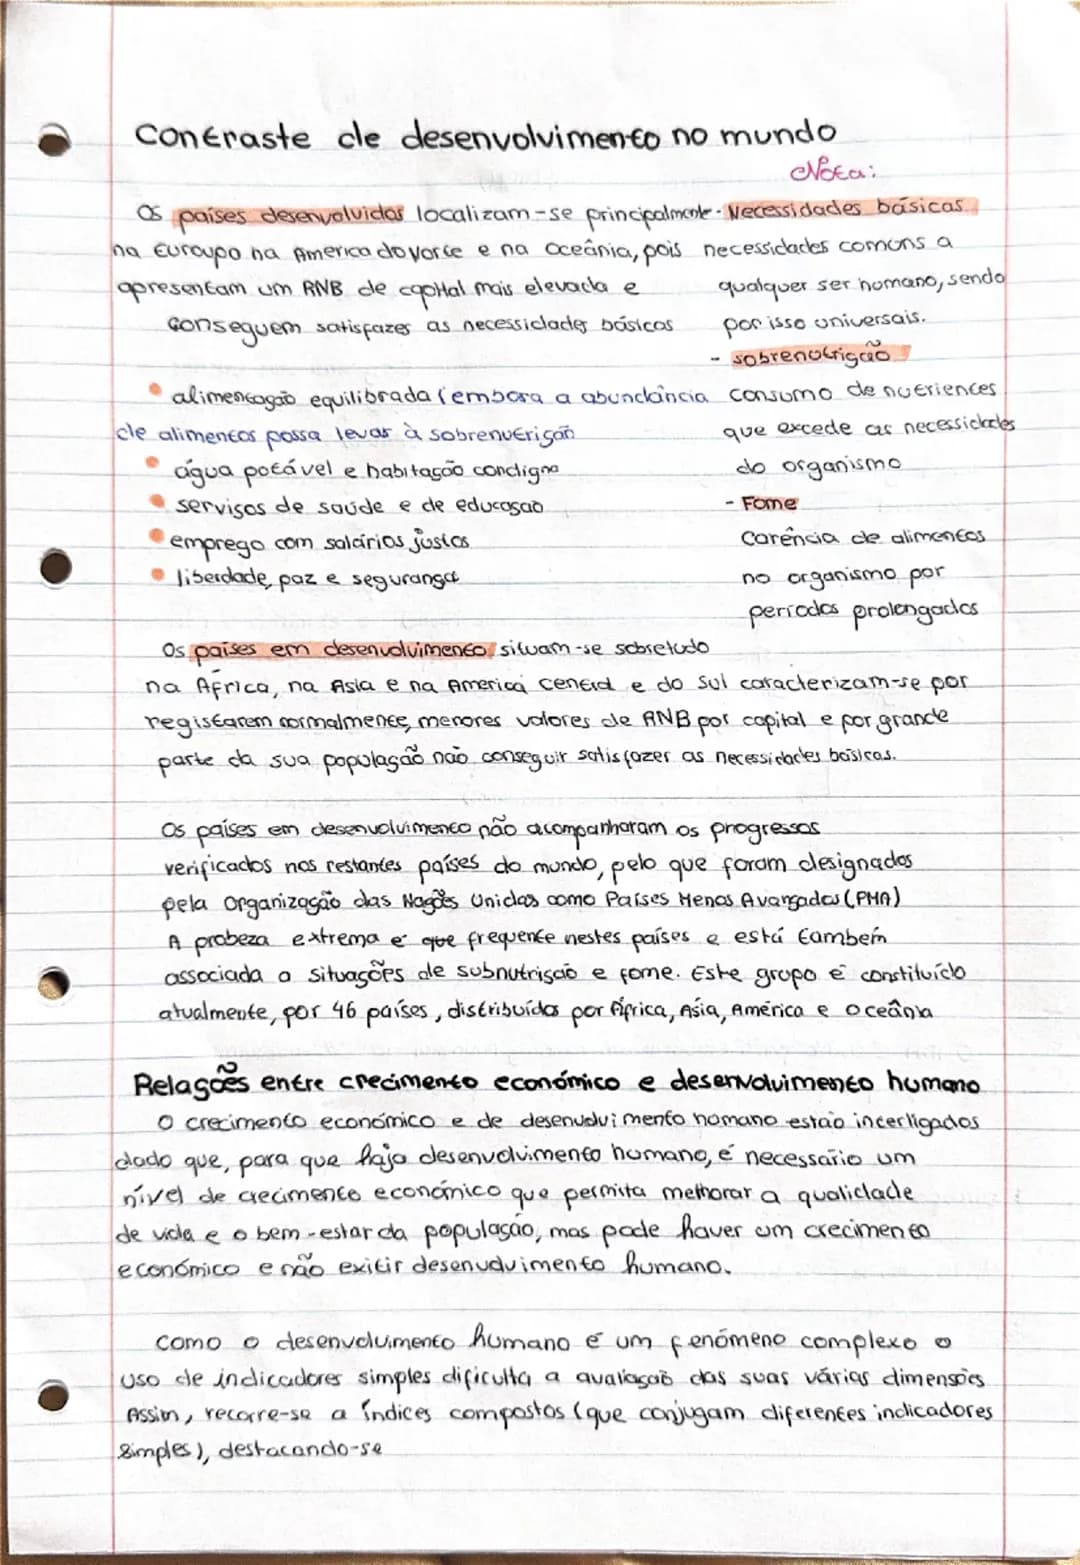 Contraste de desenvolvimento no mundo
Nota:
Os países desenvolvidos localizam-se principalmente
na Euroupo na America do Norte e na Oceânia, pois
apresentam um RNB de capital mais elevada e
conseguem satisfazer as necessidades básicas
- Necessidades básicas
necessidades comuns a
qualquer ser humano, sendo
por isso universais.
- sobrenutrição
consumo de nutriences
que excede as necessidades
do organismo
- Fome
Carência de alimentos
no organismo por
períodos prolongados
• alimentação equilibrada (embora a abundância
de alimentos possa levar à sobrenutrição
• água potável e habitação condigna
• serviços de saúde e de educação
• emprego com salários justos
• liberdade, paz e segurança
Os países em desenvolvimento situam-se sobretudo
na África, na Asia e na America Central e do sul caracterizam-se por
registarem normalmente, menores valores de RNB por capital e por grande
parte da sua população não conseguir satisfazer as necessidades básicas.
Os países em desenvolvimento não acompanharam os progressos
verificados nos restantes países do mundo, pelo que foram designados
pela Organização das Nações Unidas como Países Menos Avançados (PMA)
A probeza extrema é que frequente nestes países e está também
associada a situações de subnutrição e fome. Este grupo é constituído
atualmente, por 46 países, distribuídos por África, Ásia, América e Oceânia
Relações entre crecimento económico e desenvolvimento humano
O crecimento económico e de desenvolvimento homano estão interligados
dado que, para que haja desenvolvimento humano, é necessário um
nível de crecimento económico que permita melhorar a qualidade
de vida e o bem-estar da população, mas pode haver um crecimento
económico e não exitir desenvolvimento humano.
Como o desenvolvimento humano é um fenómeno complexo o
uso de indicadores simples dificulta a avaliação das suas várias dimensões
Assim, recorre-se a índices compostos (que conjugam diferentes indicadores
simples), destacando-se